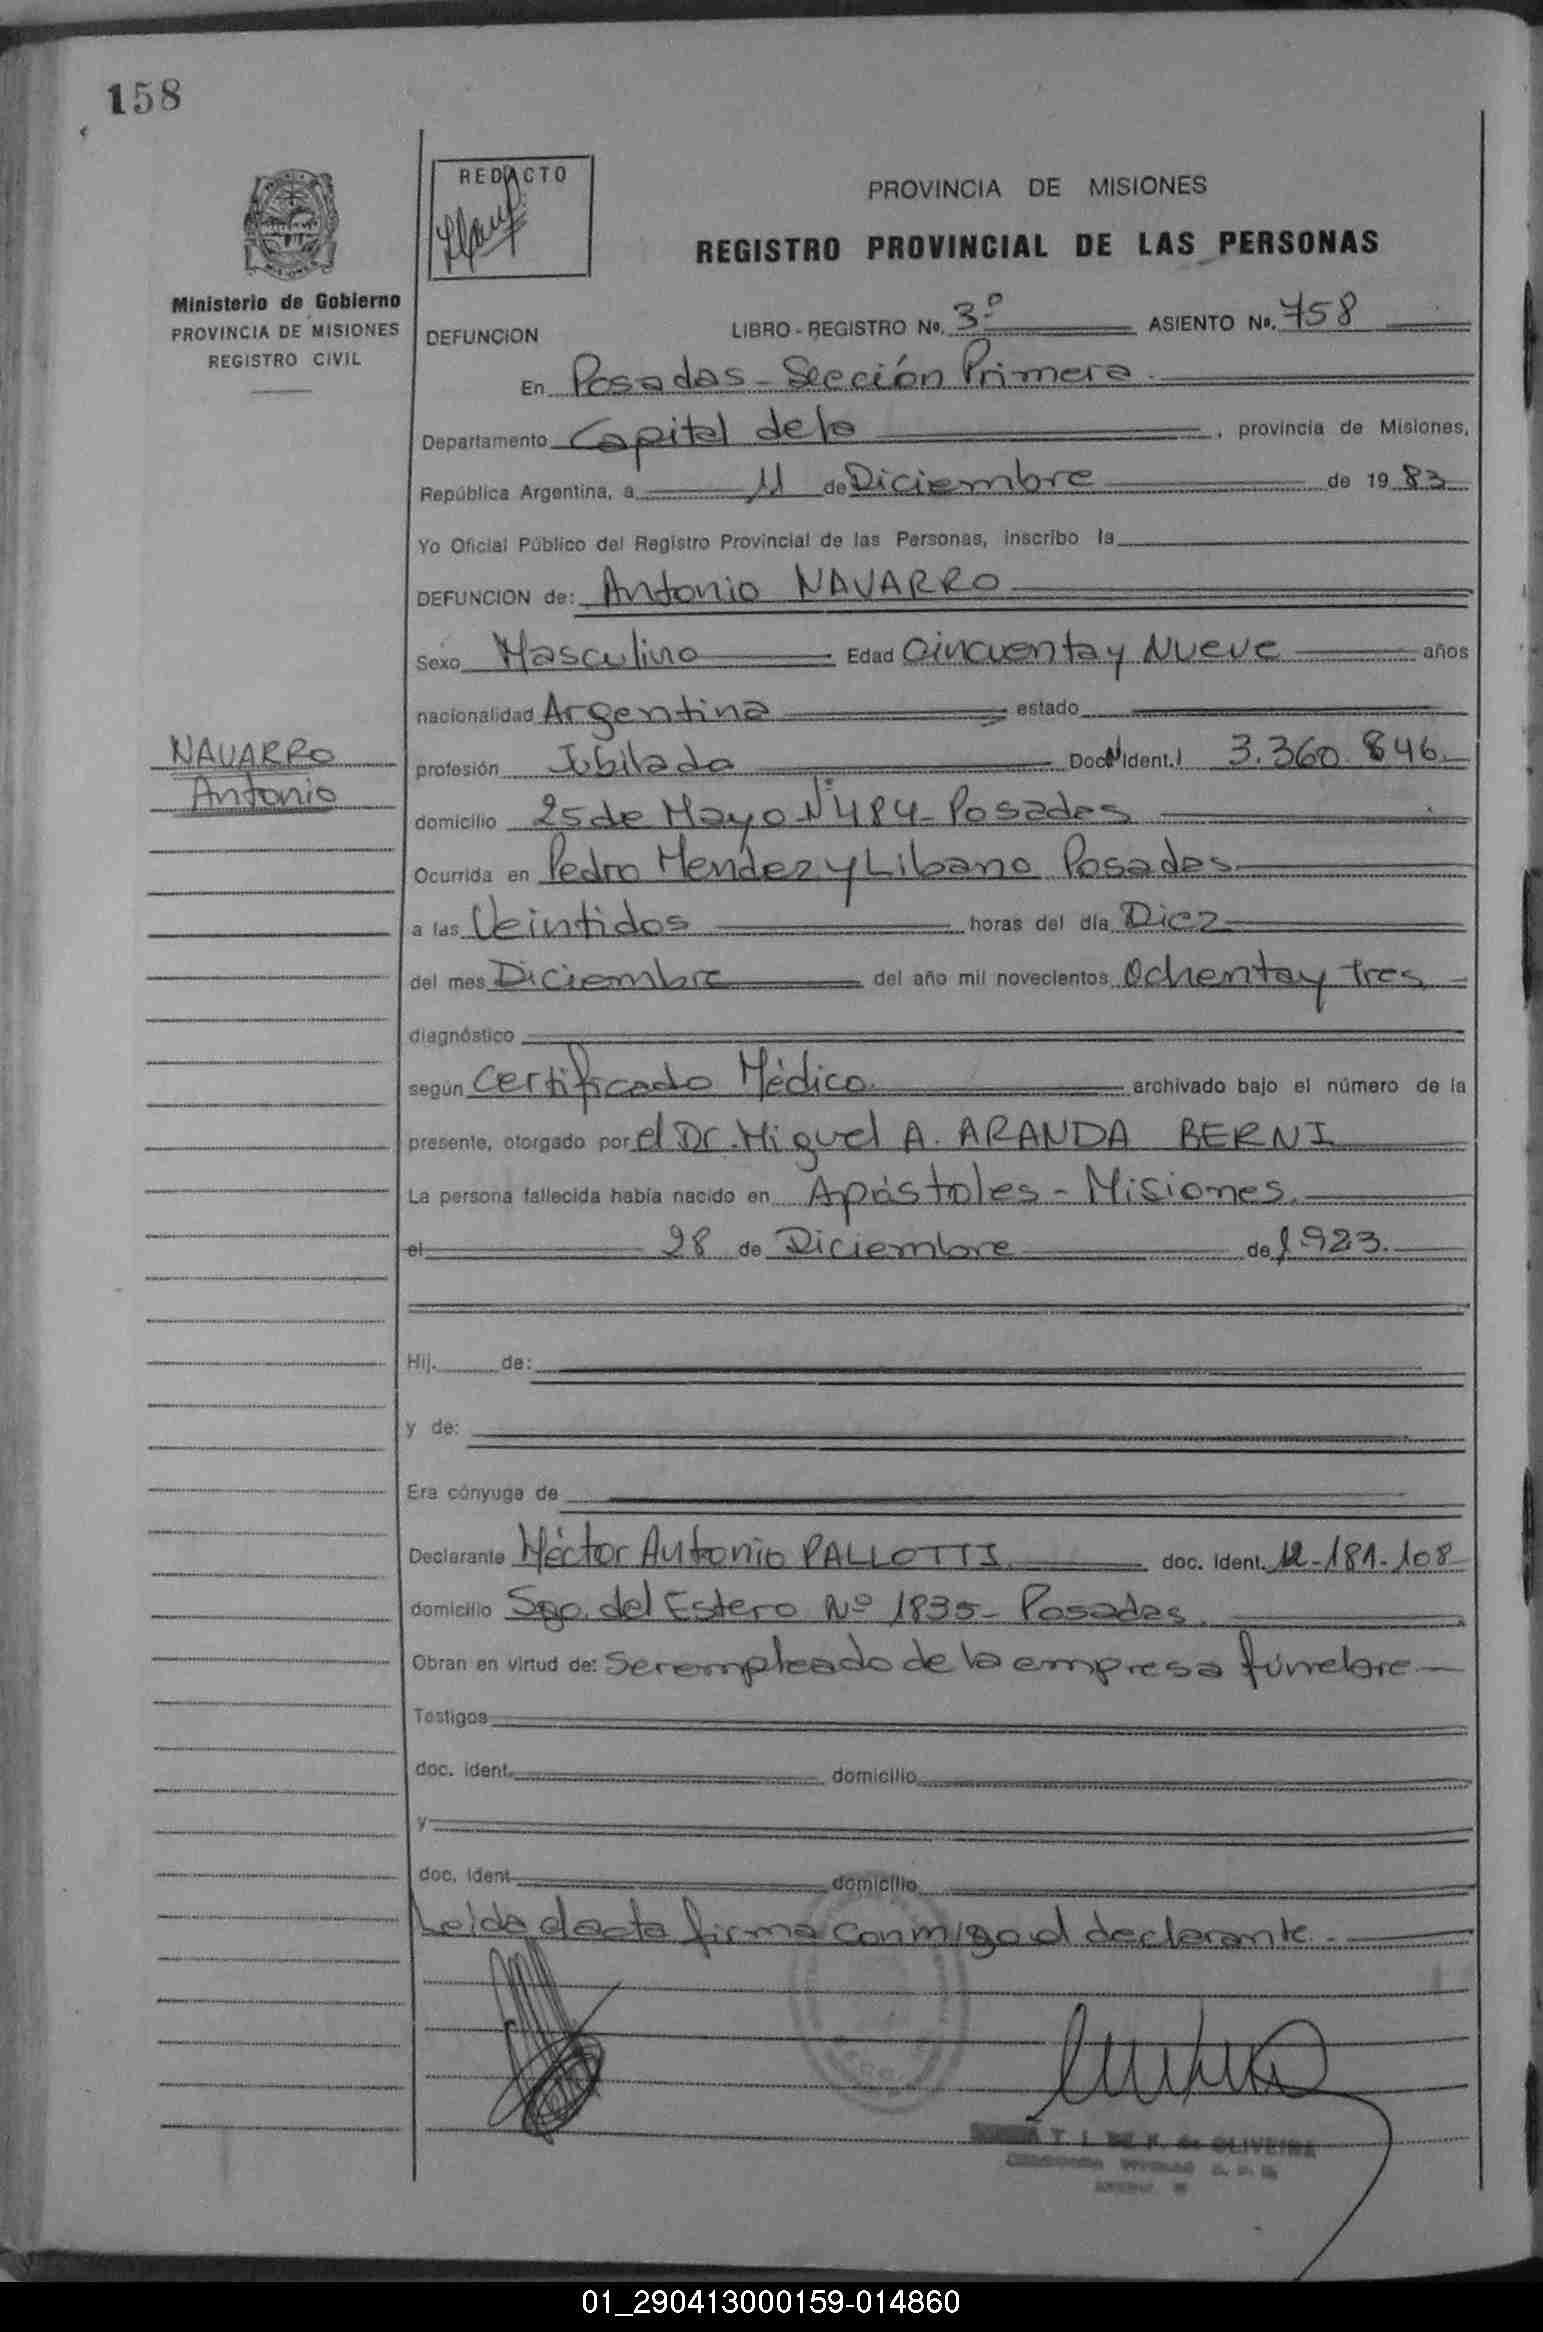 158
REDACTO
PROVINCIA DE MISIONES
REGISTRO PROVINCIAL DE LAS PERSONAS
Ministerio de Gobierno
PROVINCIA DE MISIONES
REGISTRO CIVIL
DEFUNCION LIBRO - REGISTRO No. 3º ASIENTO No. 758
En Posadas - Sección Primera.
Departamento Capital de la, provincia de Misiones,
República Argentina, a 11 de Diciembre de 1983
Yo Oficial Público del Registro Provincial de las Personas, inscribo la
DEFUNCION de: Antonio NAVARRO
Sexo Masculino Edad Cincuenta y Nueve años
nacionalidad Argentina estado
NAVARRO
Antonio
profesión Jubilado Doc. N Ident. 3.360.846
domicilio 25 de Mayo Nº 484 - Posadas
Ocurrida en Pedro Mendez y Libano Posadas
a las Veintidos horas del día Diez
del mes Diciembre del año mil novecientos Ochenta y Tres
diagnóstico
según Certificado Médico archivado bajo el número de la
presente, otorgado por el Dr. Miguel A. ARANDA BERNI
La persona fallecida había nacido en Apóstoles - Misiones.
el 28 de Diciembre de 1.923.
Hij. de:
y de:
Era cónyuge de
Declarante Héctor Antonio PALLOTTI doc. Ident. 12-181-108
domicilio Sgo. del Estero Nº 1835 - Posadas.
Obran en virtud de: Ser empleado de la empresa fúnebre
Testigos
doc. ident. domicilio
y
doc. ident. domicilio
Leida el acta firma conmigo el declarante.
DE OLIVEIRA
01_290413000159-014860